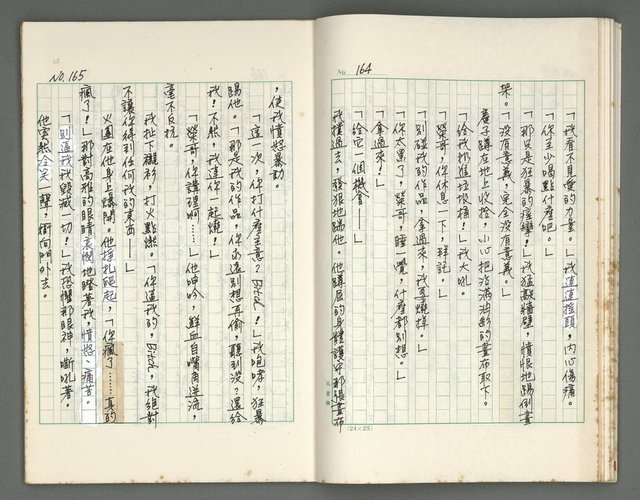 No. 164
「我看不見愛的力量。」我連連搖頭，內心傷痛。
「你至少喝點什麼吧。」
「那只是狂暴的痙攣！」我猛敲牆壁，憤恨地踢倒畫
架。「沒有意義，完全沒有意義。」
慶子蹲在地上收拾，小心把沾滿油彩的畫布取下。
「給我扔進垃圾桶！」我大吼。
「榮哥，你休息一下，拜託。」
「別碰我的作品，拿過來，我要燒掉。」
「你太累了，榮哥，睡一覺，什麼都別想。」
「拿過來！」
「給它一個機會——」
我撲過去，發狠地踢他。他蹲屈的身體護守那張畫布
(24×25)
No. 165
，使我憤怒暴動。
「這一次，你打什麼主意？Bird！」我咆哮，狂暴
踢他。「那是我的作品，你永遠別想再偷，聽到沒？還給
我！不然，我連你一起燒！」
「榮哥，你講理啊……」他呻吟，鮮血自嘴角逆流，
毫不反抗。
我扯下襯衫，打火點燃。「你逼我的，Bird，我絕對
不讓你得到任何我的東西——」
火團在他身上爆開。他掙扎爬起，「你瘋了……真的
瘋了！」那對高雅的眼睛哀憫地瞪著我，憤怒、痛苦。
「別逼我我毀滅一切！」我恐懼那眼神，嘶吼著。
他突然冷笑一聲，衝向門外去。